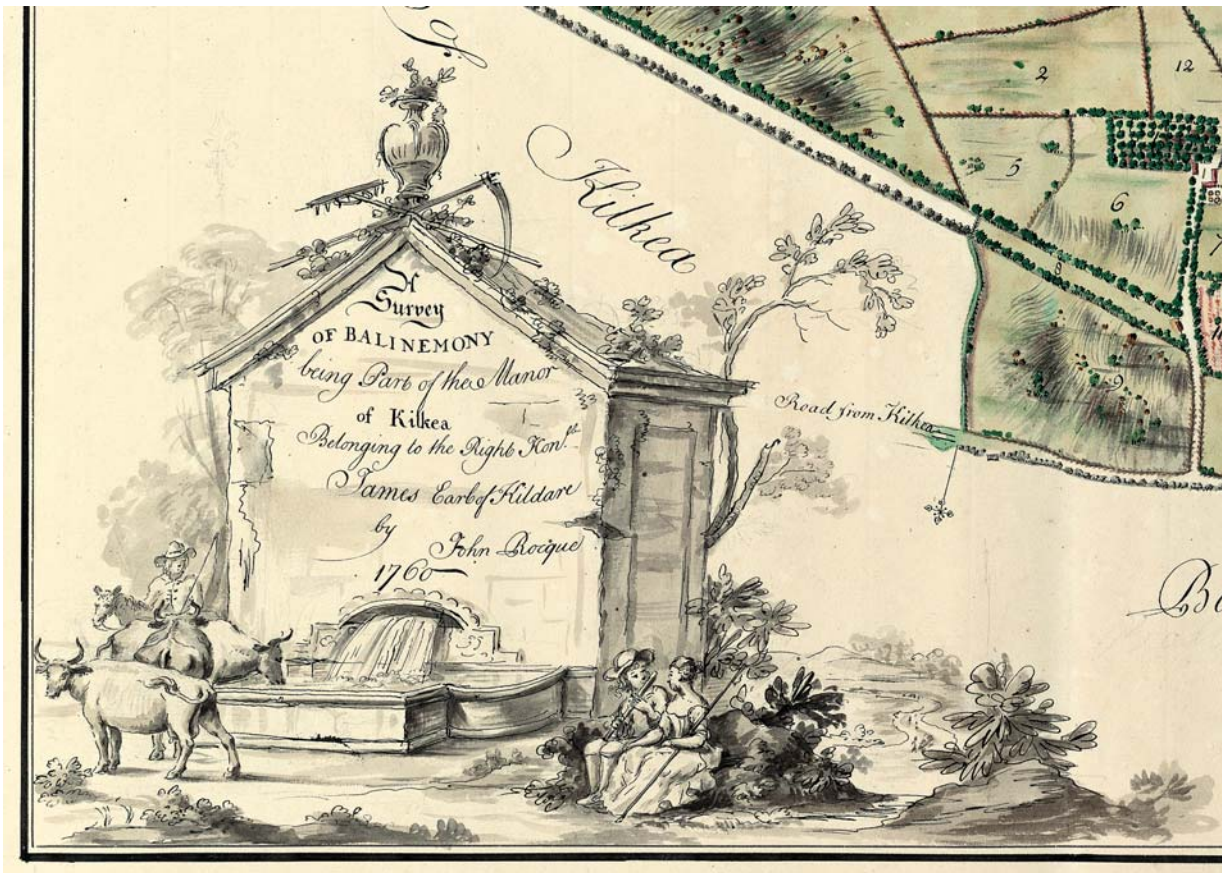 Kilkea
A
Survey
OF BALINEMONY
being Part of the Manor
of Kilkea
Belonging to the Right Hon.
James Earl of Kildare
by
John Rocque
1760
Road from Kilkea
2
12
5
6
7
8
9